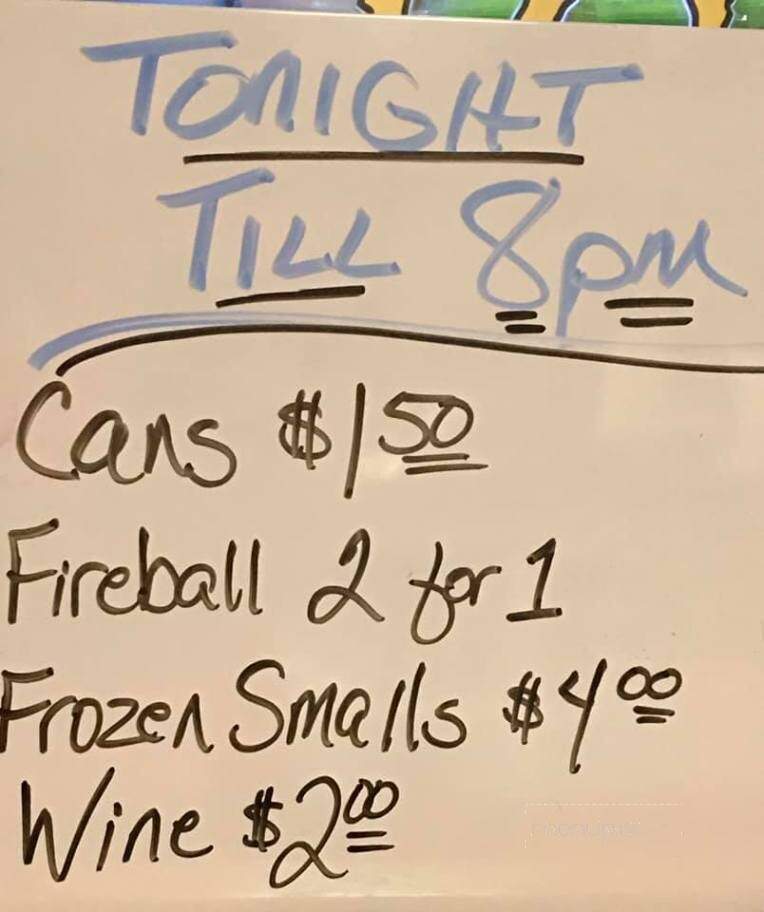 TONIGHT
TILL 8pm
Cans $1 50
Fireball 2 for 1
Frozen Smalls $4 00
Wine $2 00